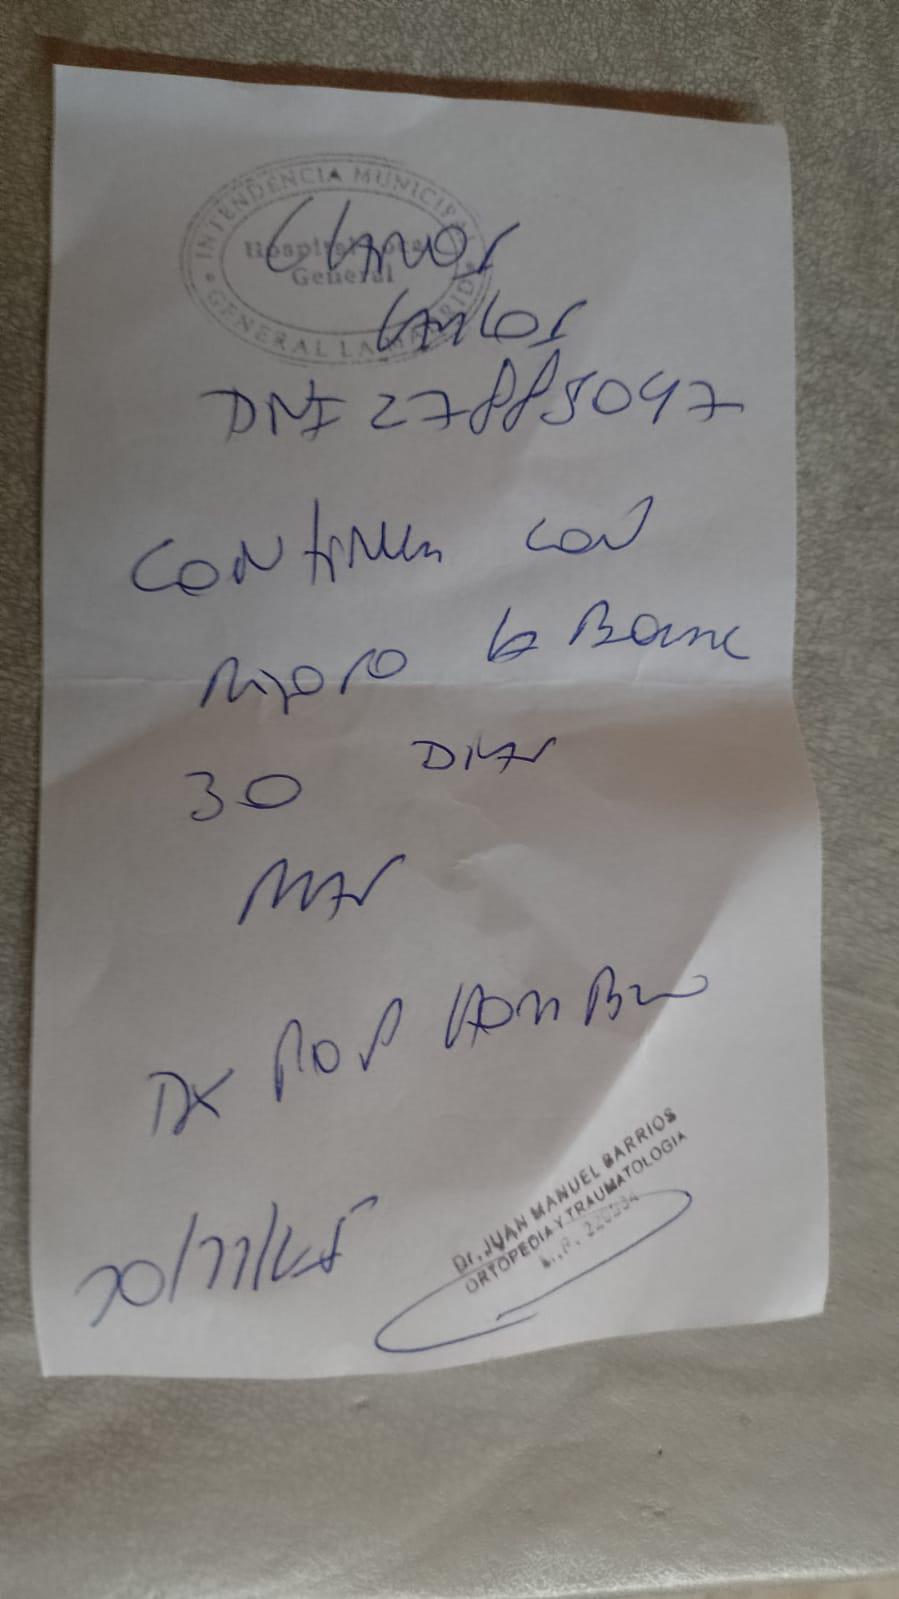 INTENDENCIA MUNICIPAL
Hospital Local
General
GENERAL LAMADRID
Carlos
DNI 27885047
CONTINUA CON
REPOSO LABORAL
30 DIAS
MAS
DX POP HOMBRO
20/11/25
Dr. JUAN MANUEL BARRIOS
ORTOPEDIA Y TRAUMATOLOGIA